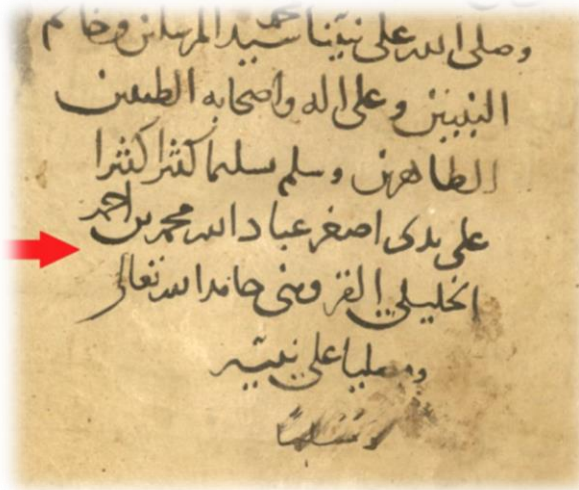 وصلى الله على نبينا محمد سيد المرسلين وخاتم
النبيين وعلى اله واصحابه الطيبين
الطاهرين وسلم تسليما كثيرا كثيرا
على يدى اصغر عباد الله محمد بن احمد
الخليلي القزوينى حامدا لله تعالى
ومصليا على نبيه
ومسلما